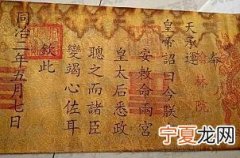 奉
翰林院
天承運
皇帝詔曰今朕
安救命兩宮
皇太后悉政
聰之而諸臣
變竭心佐耳
欽此
同治二年五月七日
宁夏龙网